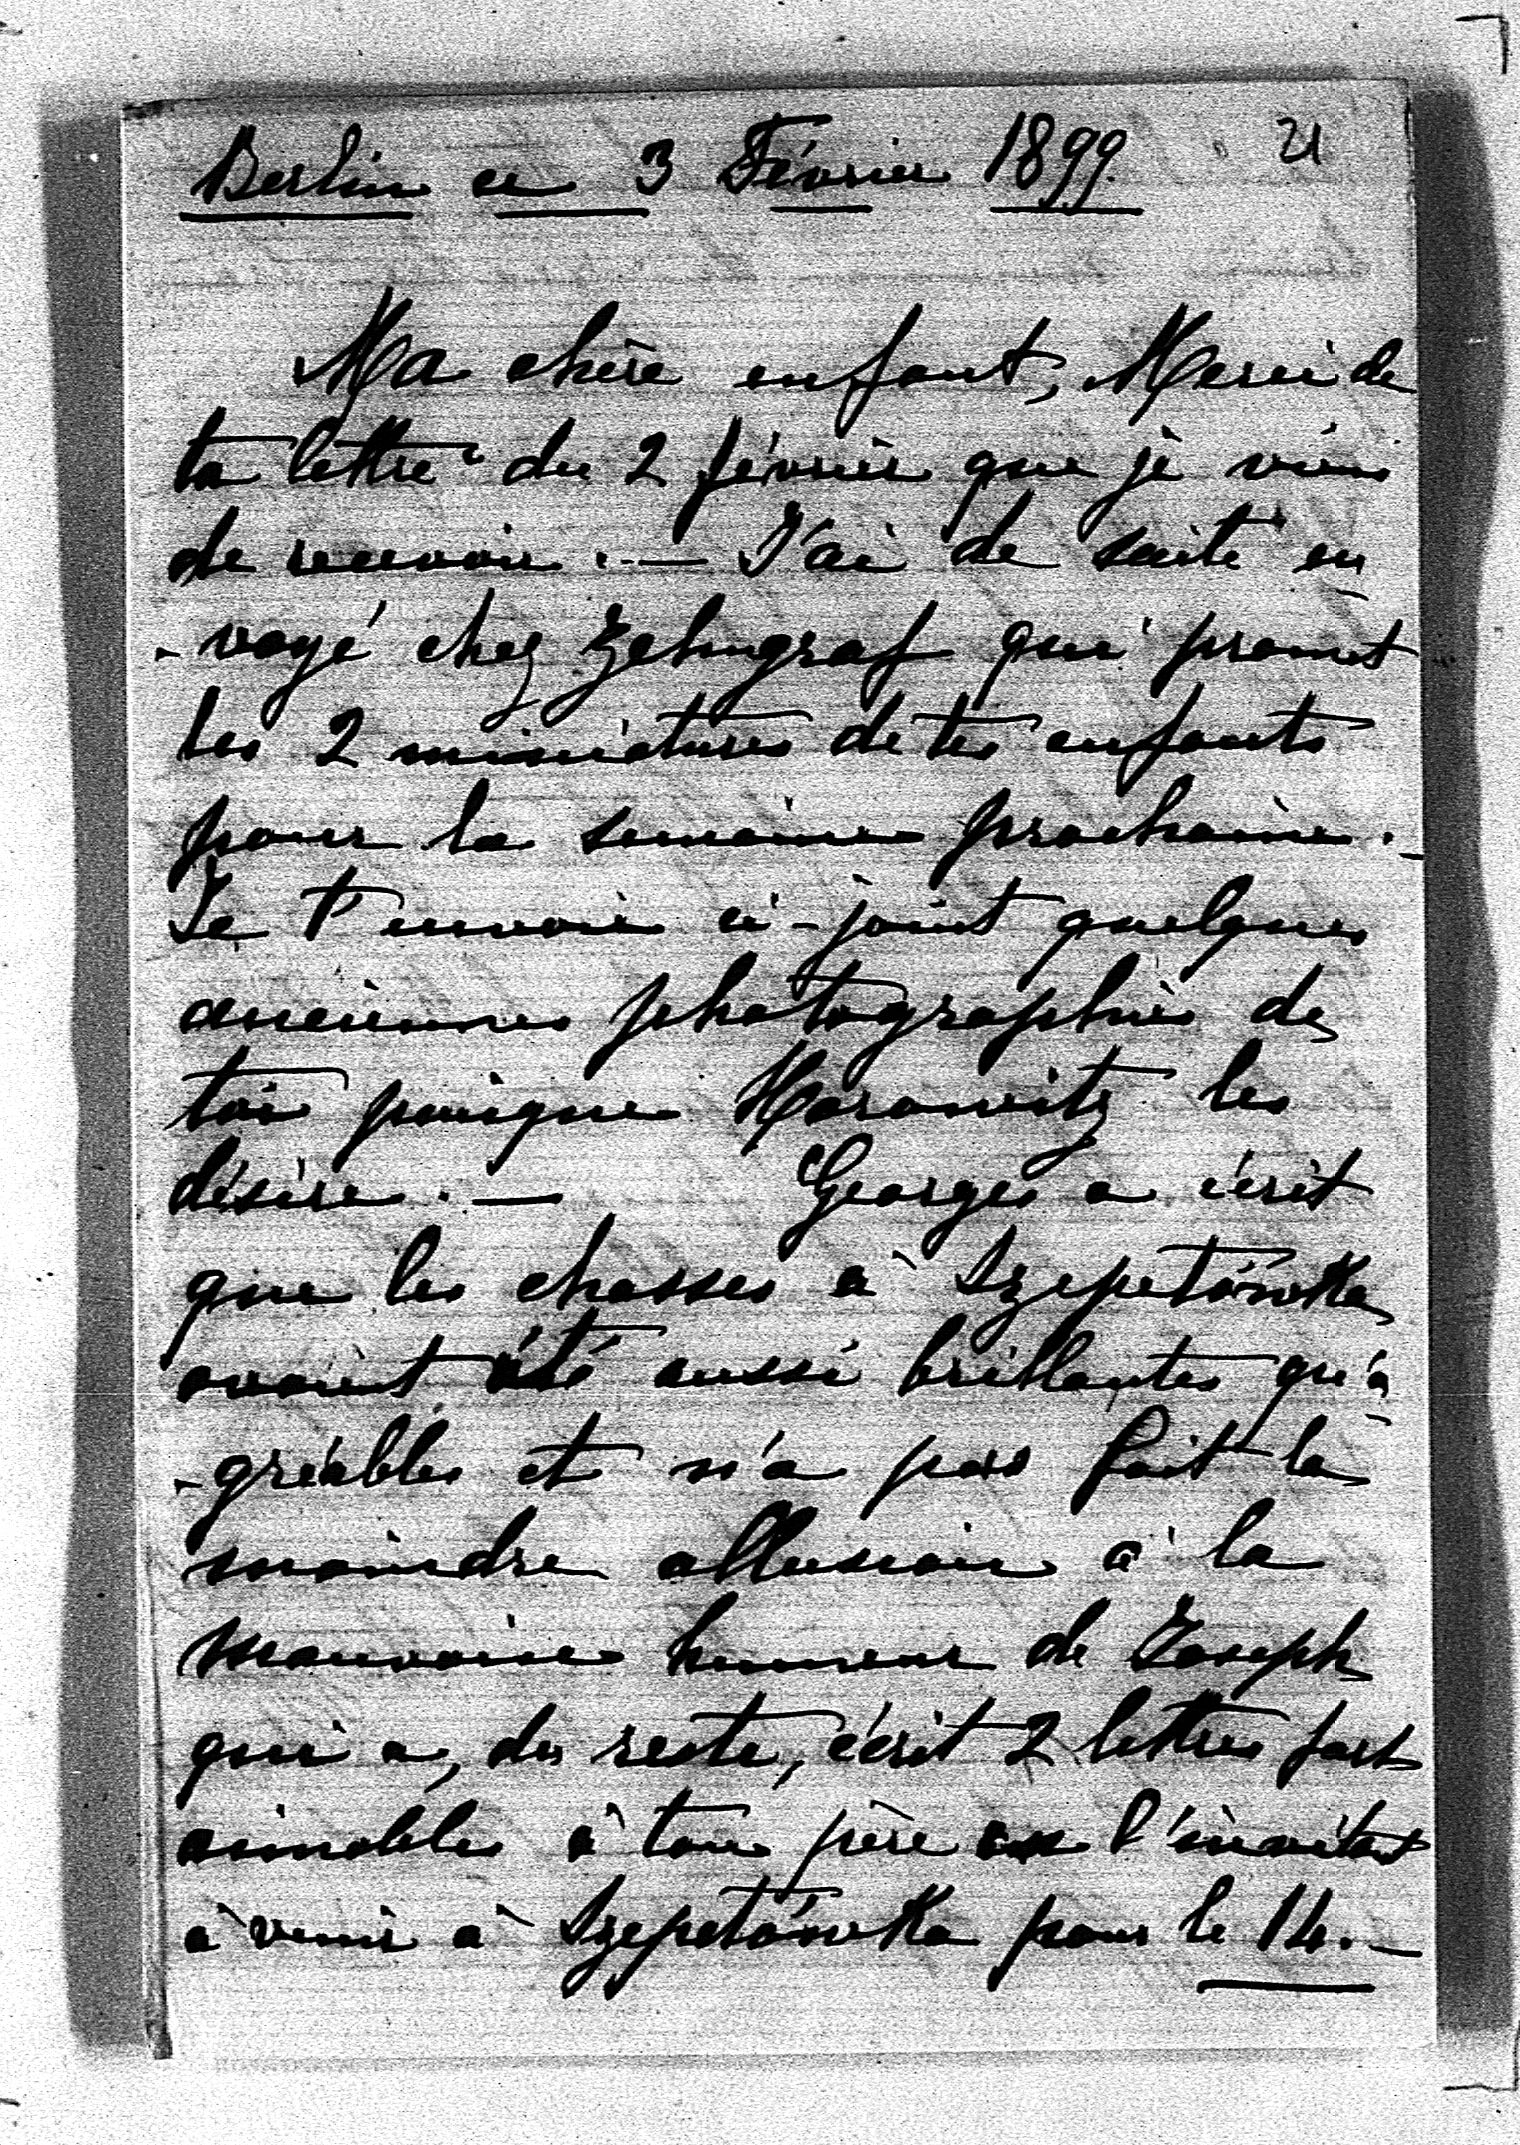 Berlin ce 3 Février 1899. 21
Ma chère enfant, Merci de
ta lettre du 2 février que je viens
de recevoir. — J'ai de suite en
-voyé chez Zehngraf qui promet
les 2 miniatures de tes enfants
pour la semaine prochaine. —
Je t'envoie ci-joint quelques
anciennes photographies de
toi puisque Horowitz les
désire. — Georges a écrit
que les chasses à Szepetówka
avaient été aussi brillantes qu'a
-gréables et n'a pas fait la
moindre allusion à la
mauvaise humeur de Joseph
qui a, du reste, écrit 2 lettres fort
aimables à ton père en l'invitant
à venir à Szepetówka pour le 14. —